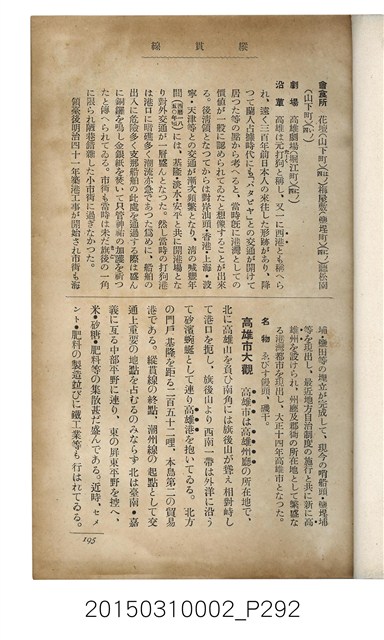 縱貫線
會宴所 花壇(山下町)
(山下町) 聽松園
劇場 高雄劇場(堀江町)
沿革 高雄は元打狗と稱し、又一に西港とも稱へら
れ、遠く三百年前日本人の來往した形跡があり、降
つて蘭人占據時代にもバタビヤとの交通が開けて
居つた等の點から考へると、當時既に港灣としての
價値が一般に認められてゐたと想像することが出來
る。後淸領となつてからは對岸汕頭・香港・上海・波
寧・天津等との交通が漸次頻繁となり、淸の咸豐年
間には、基隆・淡水・安平と共に開港場とな
り對外交通が一層盛んとなつた。然し當時の打狗港
は港口に暗礁多く潮流亦急であつた爲めに、船舶の
出入に危險多く支那船舶の此處を通過する際は盛ん
に銅鑼を鳴し金銀紙を焚いて只管神祐の加護を祈つ
たと傳へられてゐる。市街も當時は未だ旗後の一角
に限られ陋巷錯雜した小市街に過ぎなかつた。
領臺後明治四十一年築港工事が開始され市街も海
埔・鹽田等の埋立が完成して、現今の哨船頭・鹽埕埔
等を現出し、最近地方自治制度の施行と共に新に高
雄州を設けられ、州廳及郡衙の所在地として繁盛な
る港灣都市を現出し、大正十四年高雄市となつた。
名物 ゑびす饅頭、磯干。
高雄市大觀 高雄市は高雄州廳の所在地で、
北に高雄山を負ひ南角には旗後山が聳え相對峙し
て港口を扼し、旗後山より西南一帶は外洋に沿う
て砂濱蜿蜒として連り高雄港を抱いてゐる。北方
の門戶基隆を距る二百五十二哩、本島第二の貿易
港である。縱貫線の終點、潮州線の起點として交
通上重要の地點を占むるのみならず、北は臺南・嘉
義に亙る中部平野に連り、東の屏東平野を控へ、
米・砂糖・肥料等の集散甚だ盛んである。近時、セメ
ント・肥料の製造並びに鐵工業等も行はれてゐる。
195
20150310002_P292